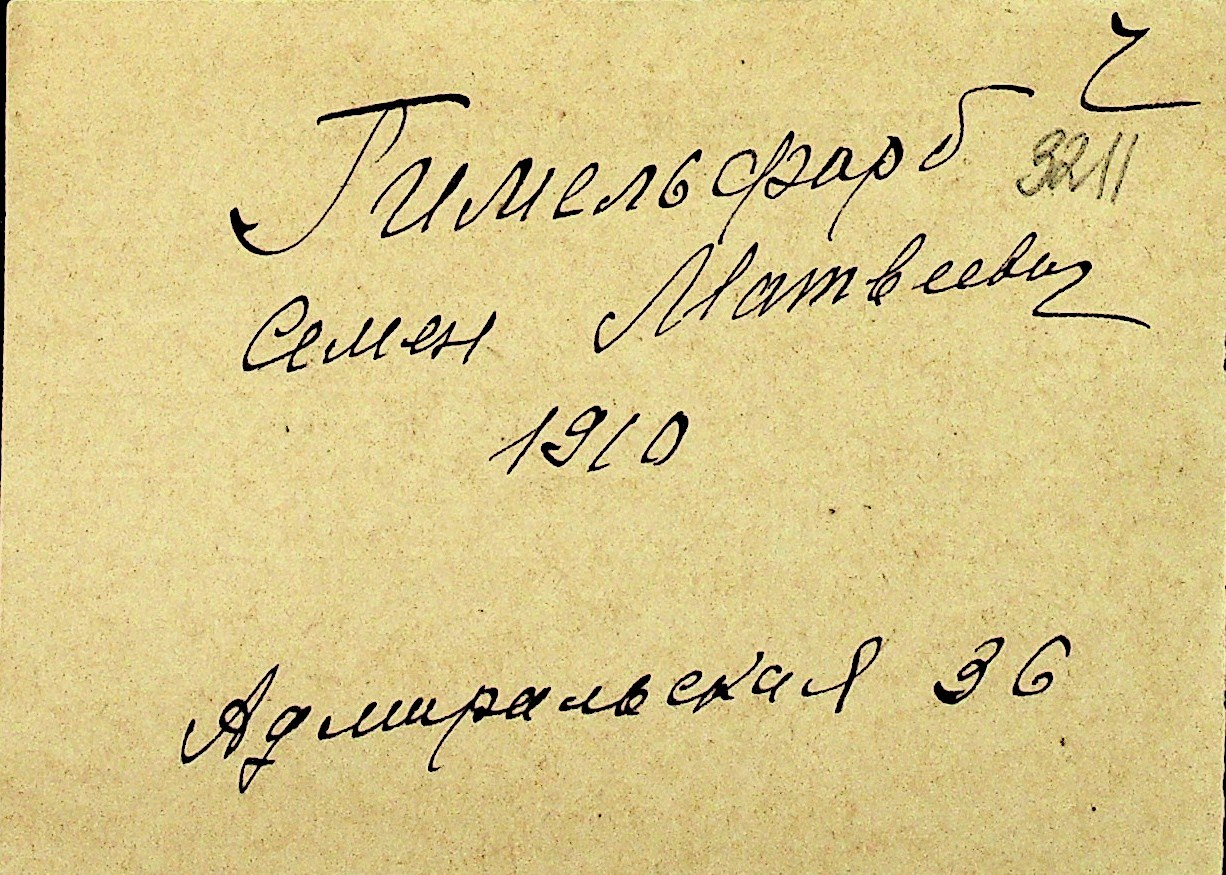 ч
Гимельфарб 3211
Семен Матвеевич
1910
Адмиральская 36